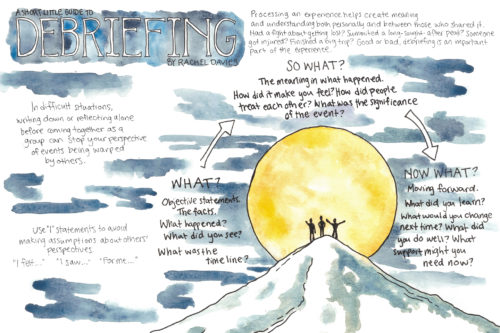 A SHORT LITTLE GUIDE TO
DEBRIEFING
BY RACHEL DAVIES
Processing an experience helps create meaning
and understanding both personally and between those who shared it.
Had a fight about getting lost? Summited a long-sought-after peak? Someone
got injured? Finished a big trip? Good or bad, debriefing is an important
part of the experience.
In difficult situations,
writing down or reflecting alone
before coming together as a
group can stop your perspective
of events being warped
by others.
Use "I" statements to avoid
making assumptions about others'
perspectives.
"I felt...." "I saw...." "For me...."
WHAT?
Objective statements.
The facts.
What happened?
What did you see?
What was the
timeline?
SO WHAT?
The meaning in what happened.
How did it make you feel? How did people
treat each other? What was the significance
of the event?
NOW WHAT?
Moving forward.
What did you learn?
What would you change
next time? What did
you do well? What
support might you
need now?